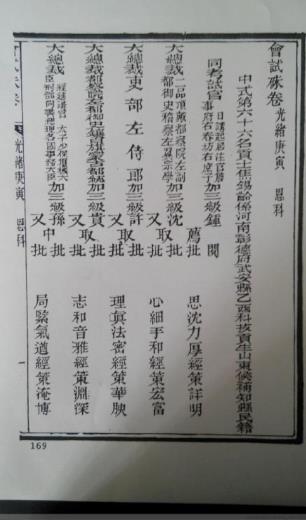 會試硃卷
光緒庚寅 恩科
中式第六十六名貢士崔錫齡係河南彰德府武安縣乙酉科拔貢生山東候補知縣民籍
同考試官 加三級鍾 閱
薦批 思沈力厚經策詳明
大總裁 二品頂戴都察院左副都御史稽察左翼宗學加三級沈
取批 心細手和經策宏富
大總裁吏部左侍郎加三級許
又取批 理眞法密經策華腴
大總裁 加三級貴
又取批 志和音雅經策淵深
大總裁 加三級孫
又中批 局緊氣遒經策淹博
光緒庚寅 恩科
169